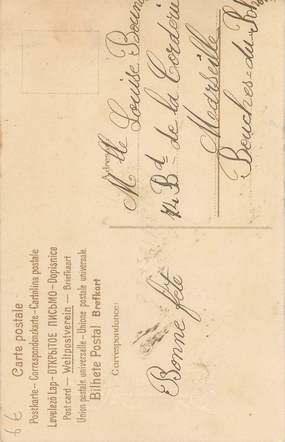 Carte postale
Postkarte – Correspondenzkarte – Cartolina postale
Levelező Lap – ОТКРЫТОЕ ПИСЬМО – Dopisnice
Post card — Weltpostverein — Briefkaart
Union postale universelle – Unione postale universale.
Bilhete Postal Brefkort
Correspondance:
Bonne fête
Adresse:
Mlle Louise
Bd de la Corderie
Marseille
Bouches-du-Rh
6 €